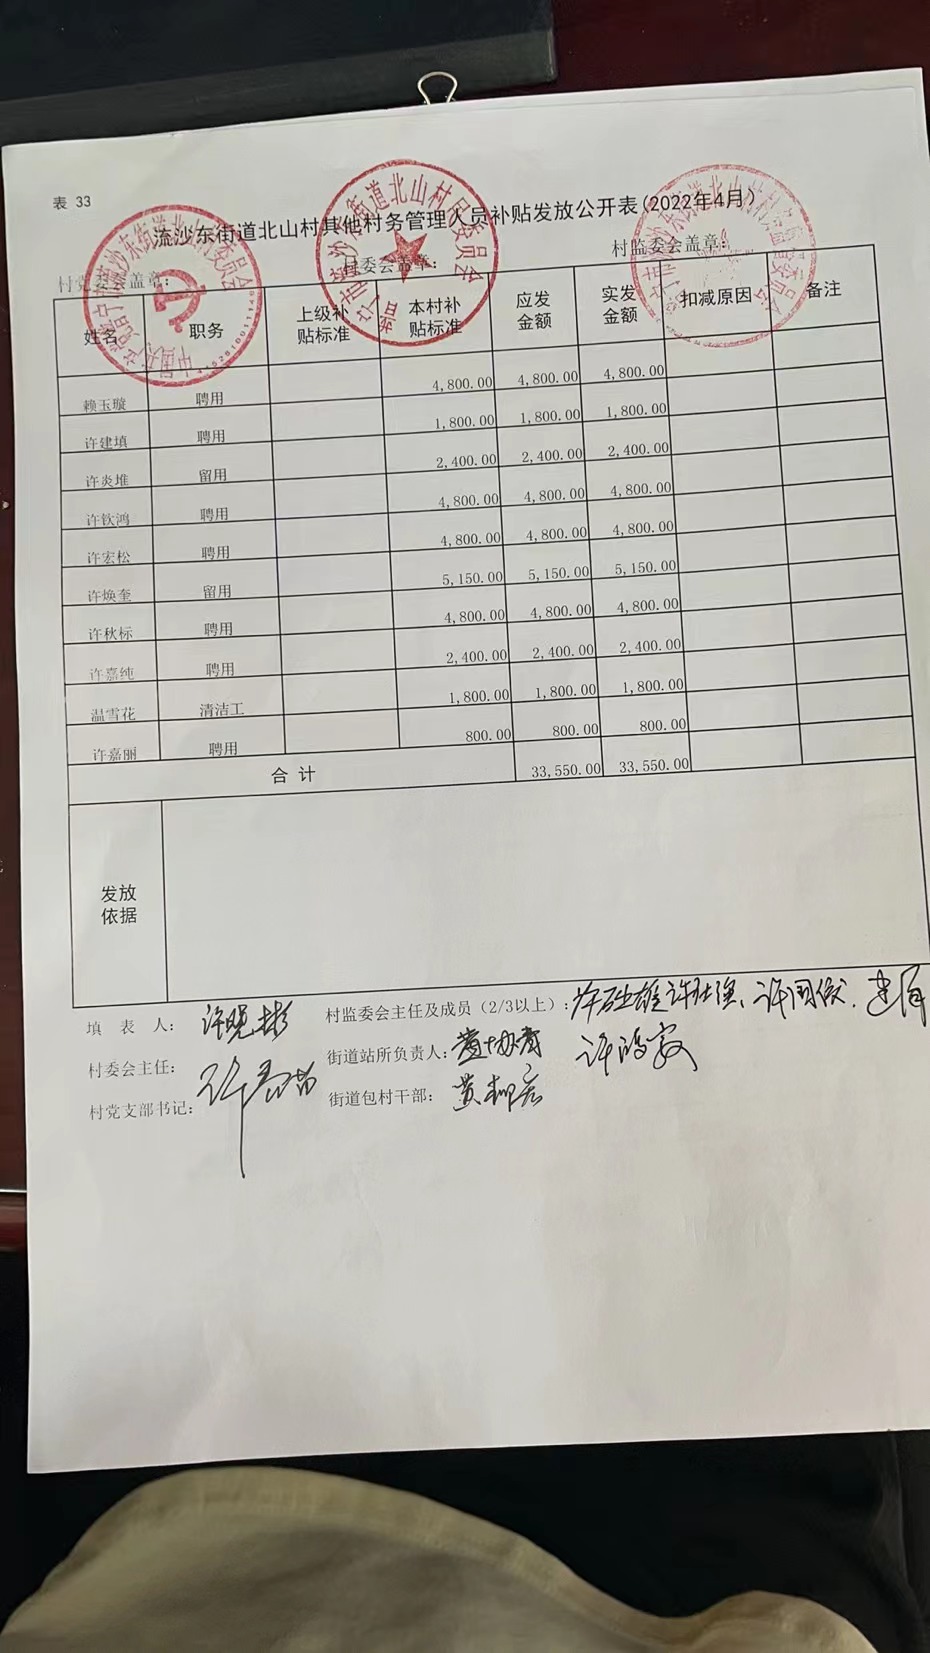 表 33
流沙东街道北山村其他村务管理人员补贴发放公开表(2022年4月)
村党支部盖章： 村委会盖章： 村监委会盖章：
姓名 职务 上级补贴标准 本村补贴标准 应发金额 实发金额 扣减原因 备注
赖玉璇 聘用 4,800.00 4,800.00 4,800.00
许建填 聘用 1,800.00 1,800.00 1,800.00
许炎堆 留用 2,400.00 2,400.00 2,400.00
许钦鸿 聘用 4,800.00 4,800.00 4,800.00
许宏松 聘用 4,800.00 4,800.00 4,800.00
许焕奎 留用 5,150.00 5,150.00 5,150.00
许秋标 聘用 4,800.00 4,800.00 4,800.00
许嘉纯 聘用 2,400.00 2,400.00 2,400.00
温雪花 清洁工 1,800.00 1,800.00 1,800.00
许嘉丽 聘用 800.00 800.00 800.00
合 计 33,550.00 33,550.00
发放依据
填 表 人： 许晓彬 村监委会主任及成员（2/3以上）:
村委会主任： 街道站所负责人：
村党支部书记： 街道包村干部：